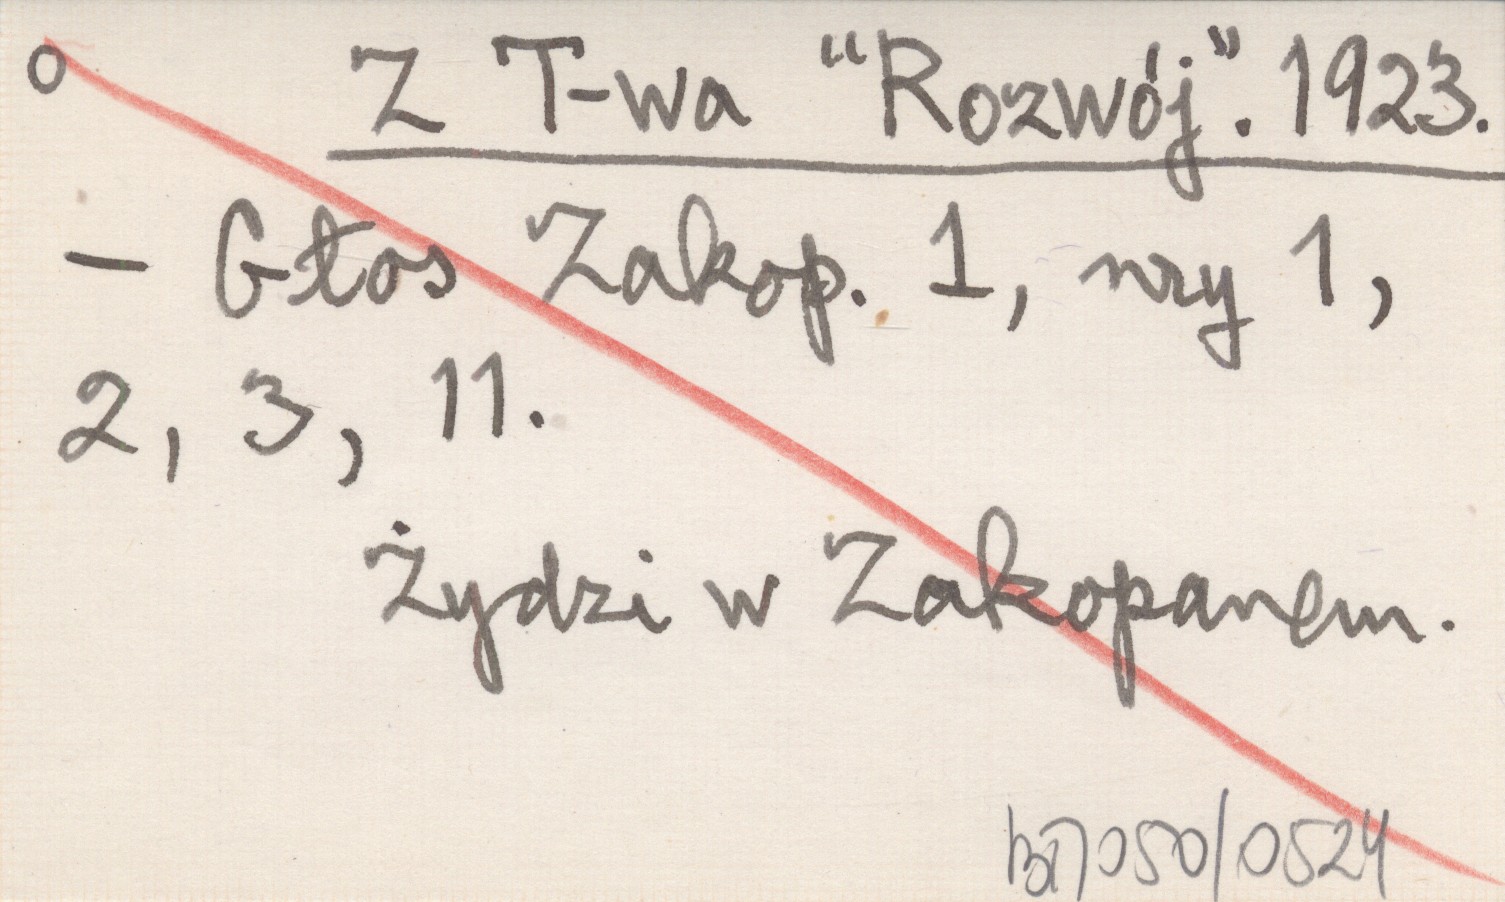 o Z T-wa "Rozwój". 1923.
- Głos Zakop. 1, nry 1,
2, 3, 11.
Żydzi w Zakopanem.
050/0524